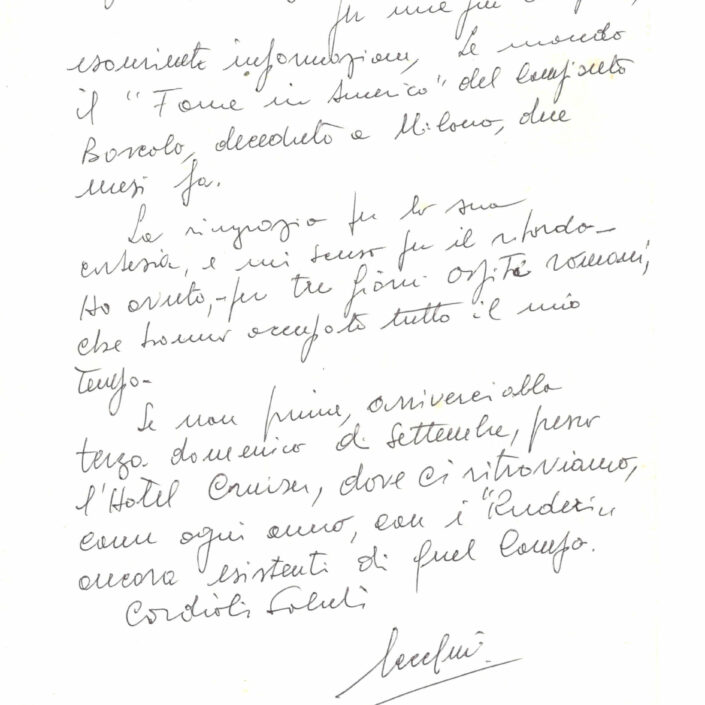 Per una più
esauriente informazione, Le mando
il "Fame in America" del compianto
Boscolo, deceduto a Milano, due
mesi fa.
La ringrazio per la sua
cortesia, e mi scuso per il ritardo-
Ho avuto,- per tre giorni ospiti romani,
che hanno occupato tutto il mio
tempo-
Se non prima, arrivederci alla
terza domenica di Settembre, presso
l'Hotel Cruiser, dove ci ritroviamo,
come ogni anno, con i "Ruderi"
ancora esistenti di quel Campo.
Cordiali Saluti